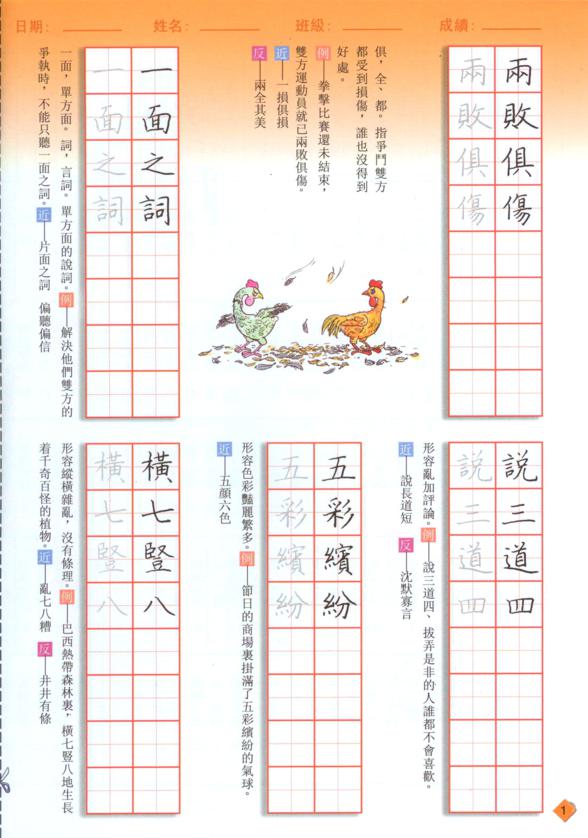 日期：
姓名：
班級：
成績：
兩敗俱傷
兩敗俱傷
俱，全、都。指爭鬥雙方
都受到損傷，誰也沒得到
好處。
例——拳擊比賽還未結束，
雙方運動員就已兩敗俱傷。
近——一損俱損
反——兩全其美
一面之詞
一面之詞
一面，單方面。詞，言詞。單方面的說詞。例——解決他們雙方的
爭執時，不能只聽一面之詞。近——片面之詞 偏聽偏信
説三道四
説三道四
形容亂加評論。例——說三道四、拔弄是非的人誰都不會喜歡。
近——說長道短 反——沈默寡言
五彩繽紛
五彩繽紛
形容色彩豔麗繁多。例——節日的商場裏掛滿了五彩繽紛的氣球。
近——五顏六色
橫七豎八
橫七豎八
形容縱橫雜亂，沒有條理。例——巴西熱帶森林裏，橫七豎八地生長
着千奇百怪的植物。近——亂七八糟 反——井井有條
1